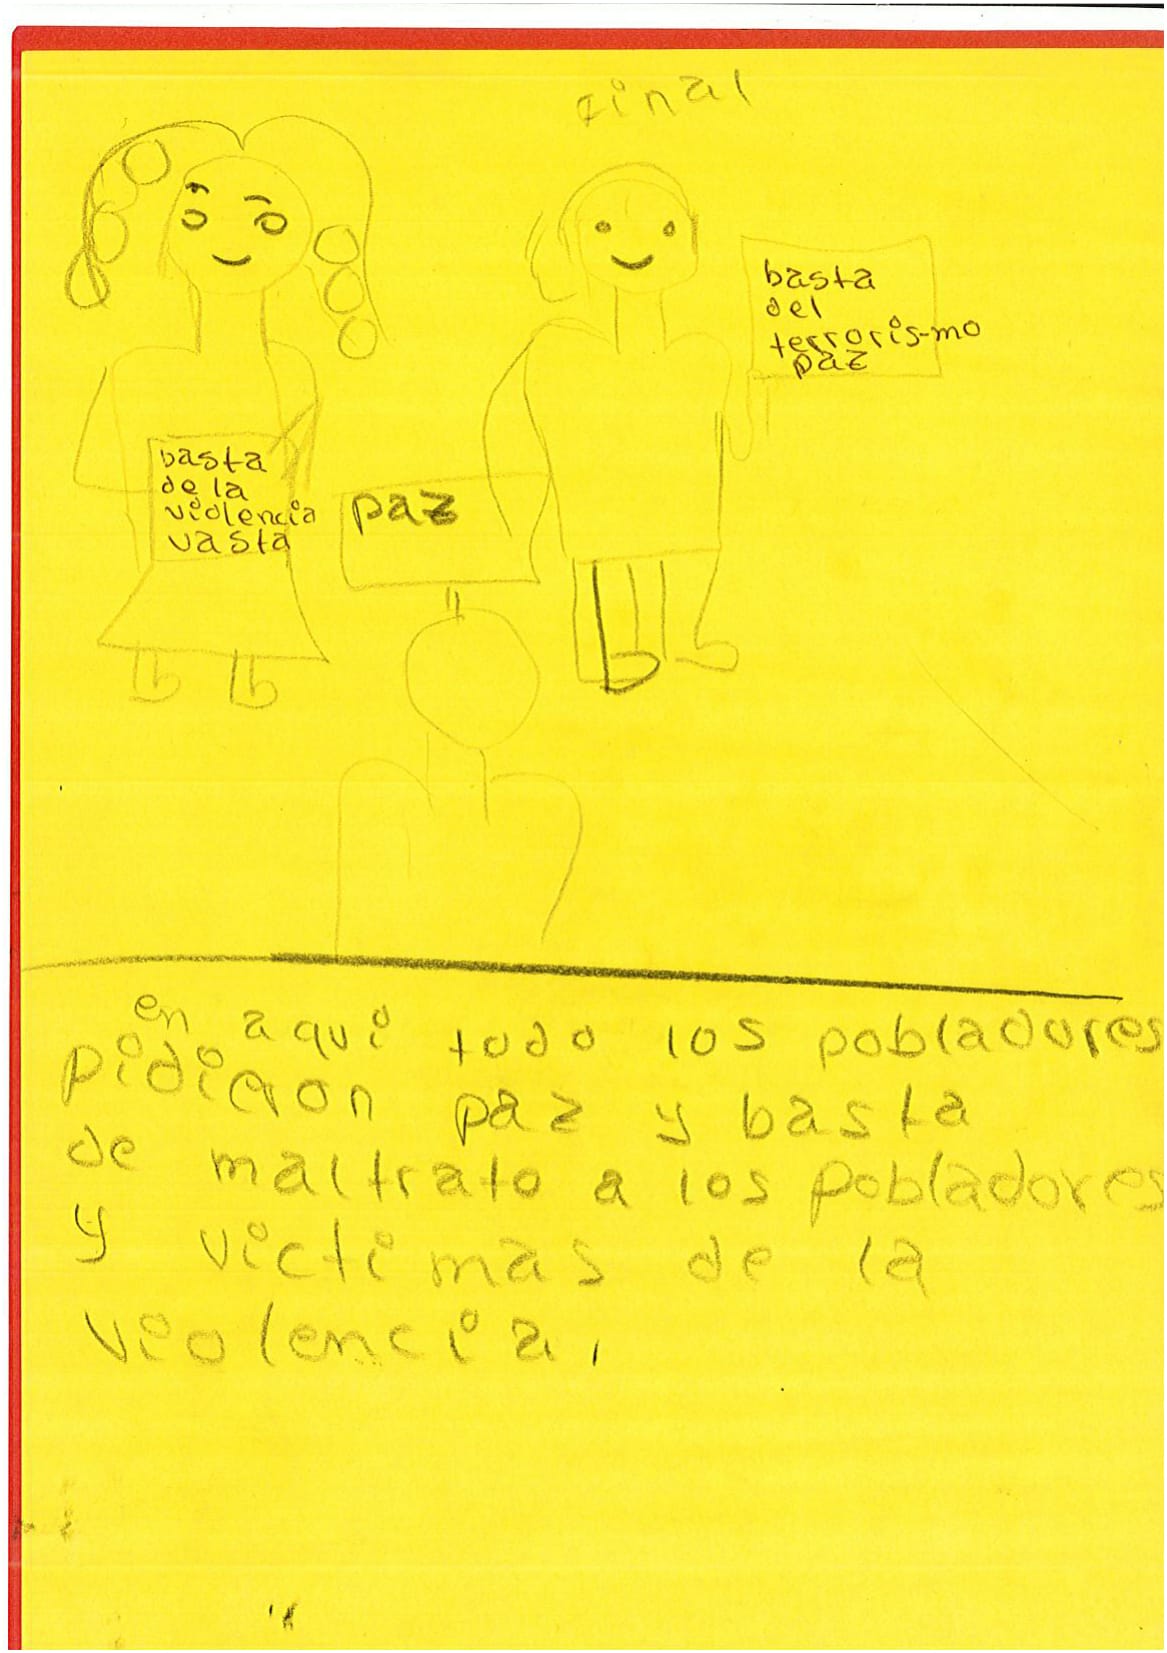 final
basta
del
terroris-mo
paz
basta
de la
violencia
vasta
paz
en aqui todo los pobladores
pidieron paz y basta
de maltrato a los pobladores
y victimas de la
violencia,